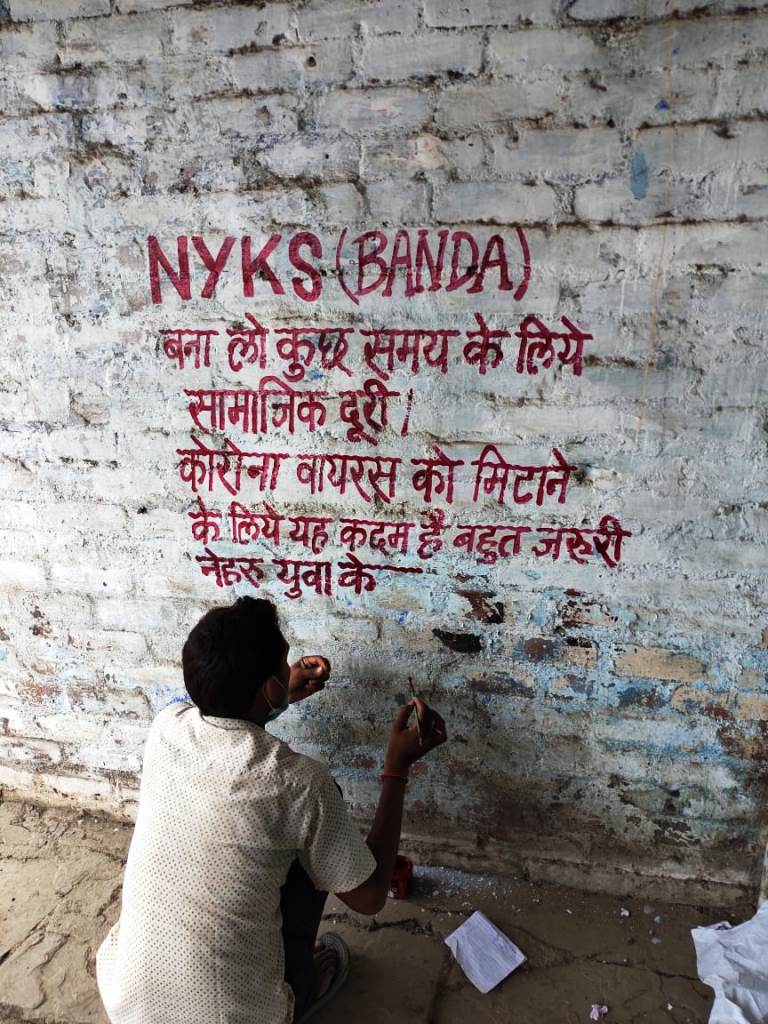 NYKS (BANDA)
बना लो कुछ समय के लिये
सामाजिक दूरी।
कोरोना वायरस को मिटाने
के लिये यह कदम है बहुत जरूरी
नेहरू युवा के